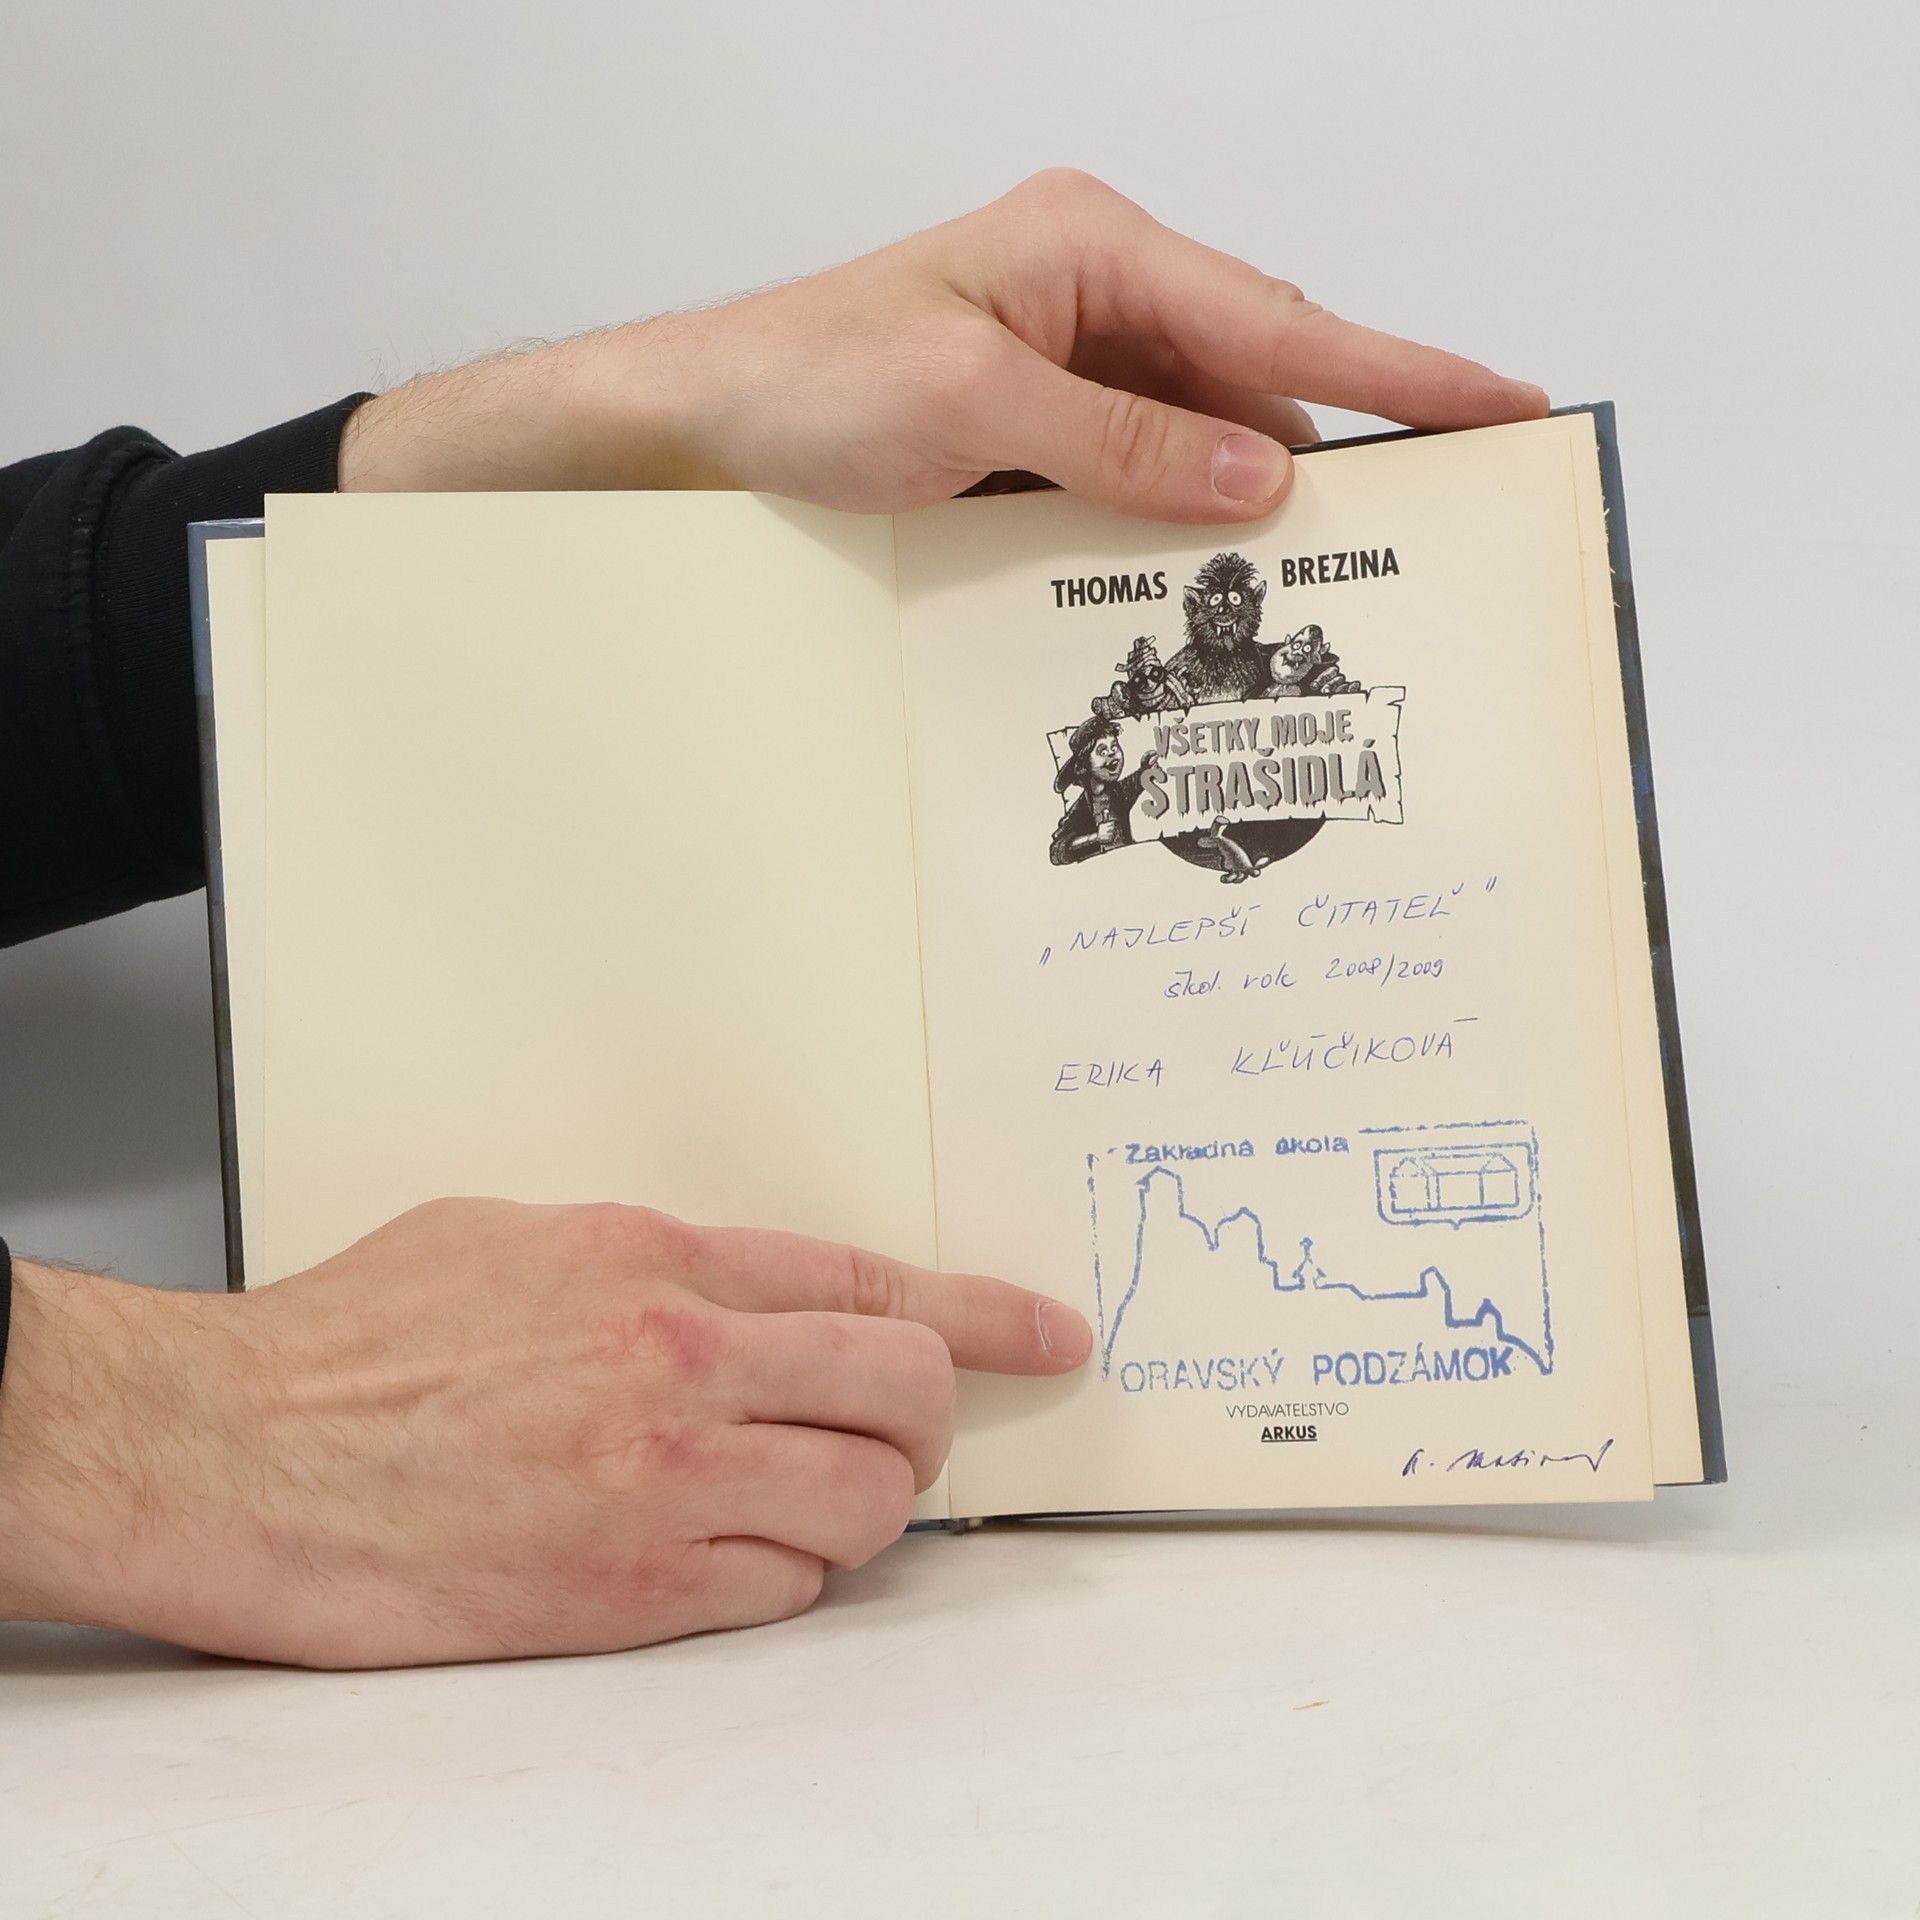 THOMAS BREZINA
VŠETKY MOJE
STRAŠIDLÁ
„NAJLEPŠÍ ČITATEĽ"
škol. rok 2008/2009
ERIKA KĽÚČIKOVÁ
Základná škola
ORAVSKÝ PODZÁMOK
VYDAVATEĽSTVO
ARKUS